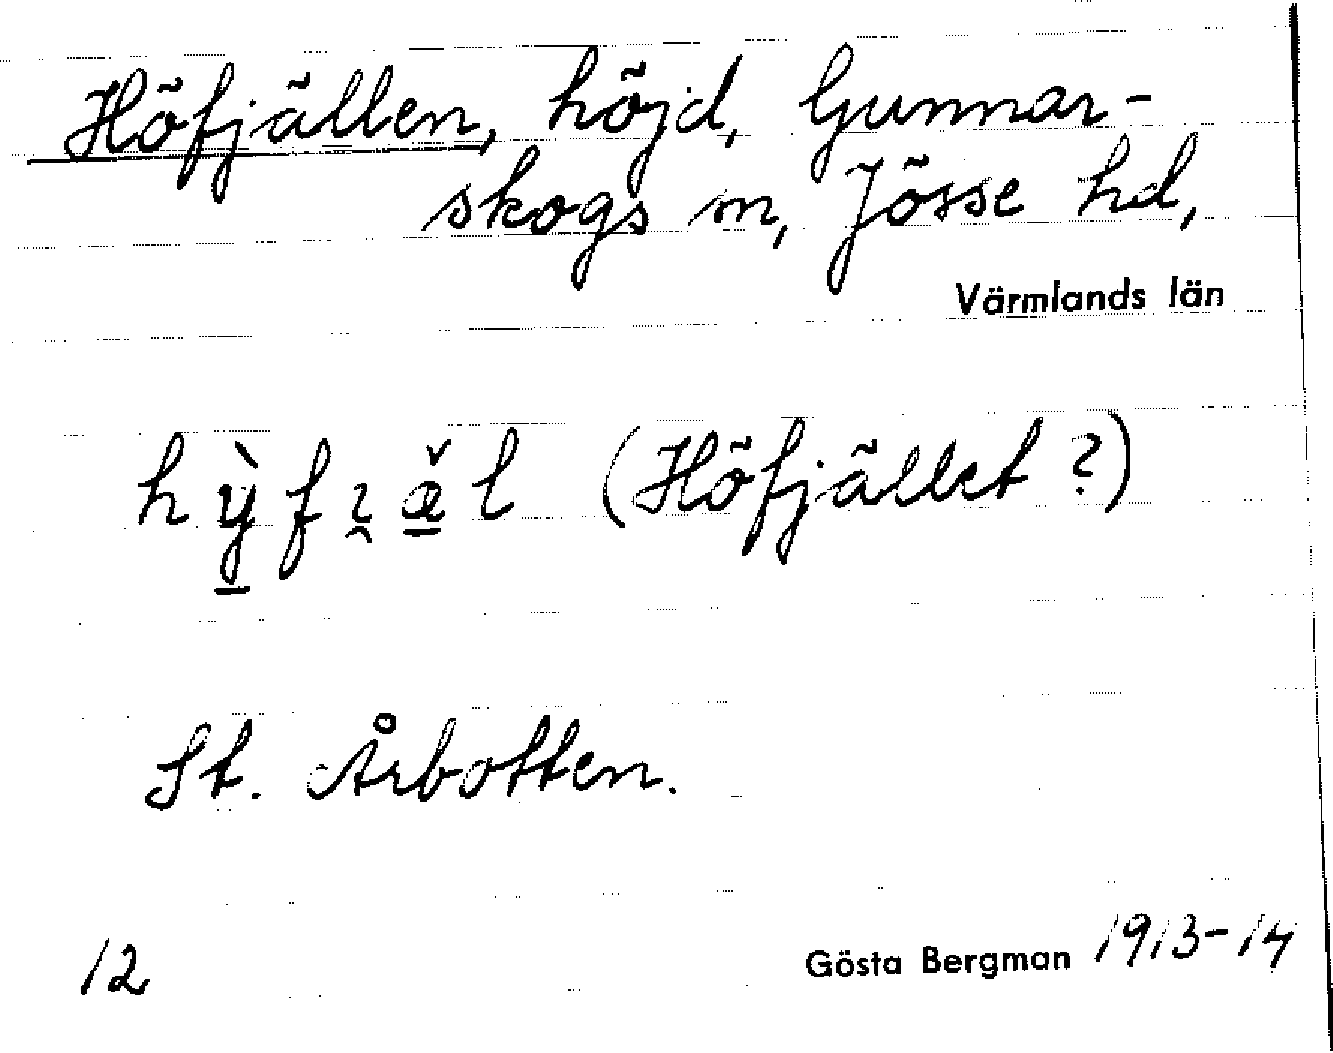 Höfjällen, höjd, Gunnar-
skogs m, Jösse hd,
Värmlands län
hỳ̱fɿ̯æ̱̌l (Höfjället?)
St. Årbotten.
12
Gösta Bergman 1913-14